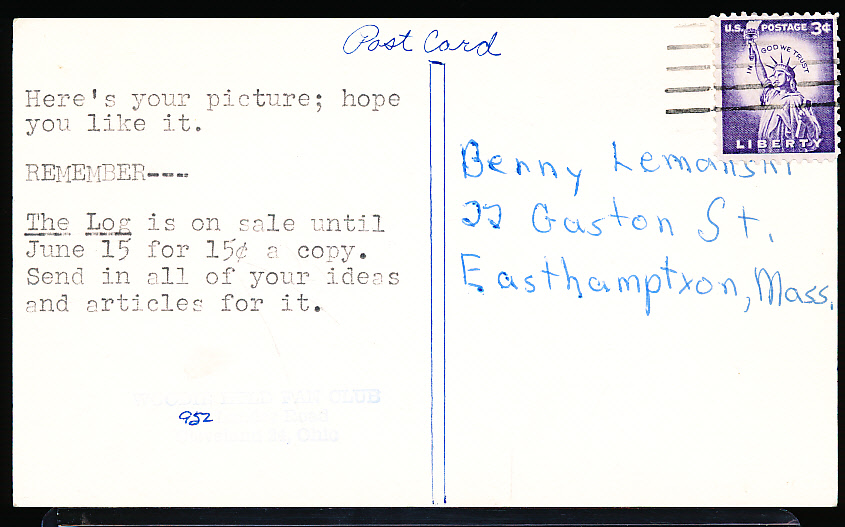 Post Card
U.S. POSTAGE 3¢
IN GOD WE TRUST
LIBERTY
Here's your picture; hope
you like it.
REMEMBER---
The Log is on sale until
June 15 for 15¢ a copy.
Send in all of your ideas
and articles for it.
Benny Lemanski
Gaston St.
Easthamptxon, Mass.
FAN CLUB
952
Road
Cleveland Ohio